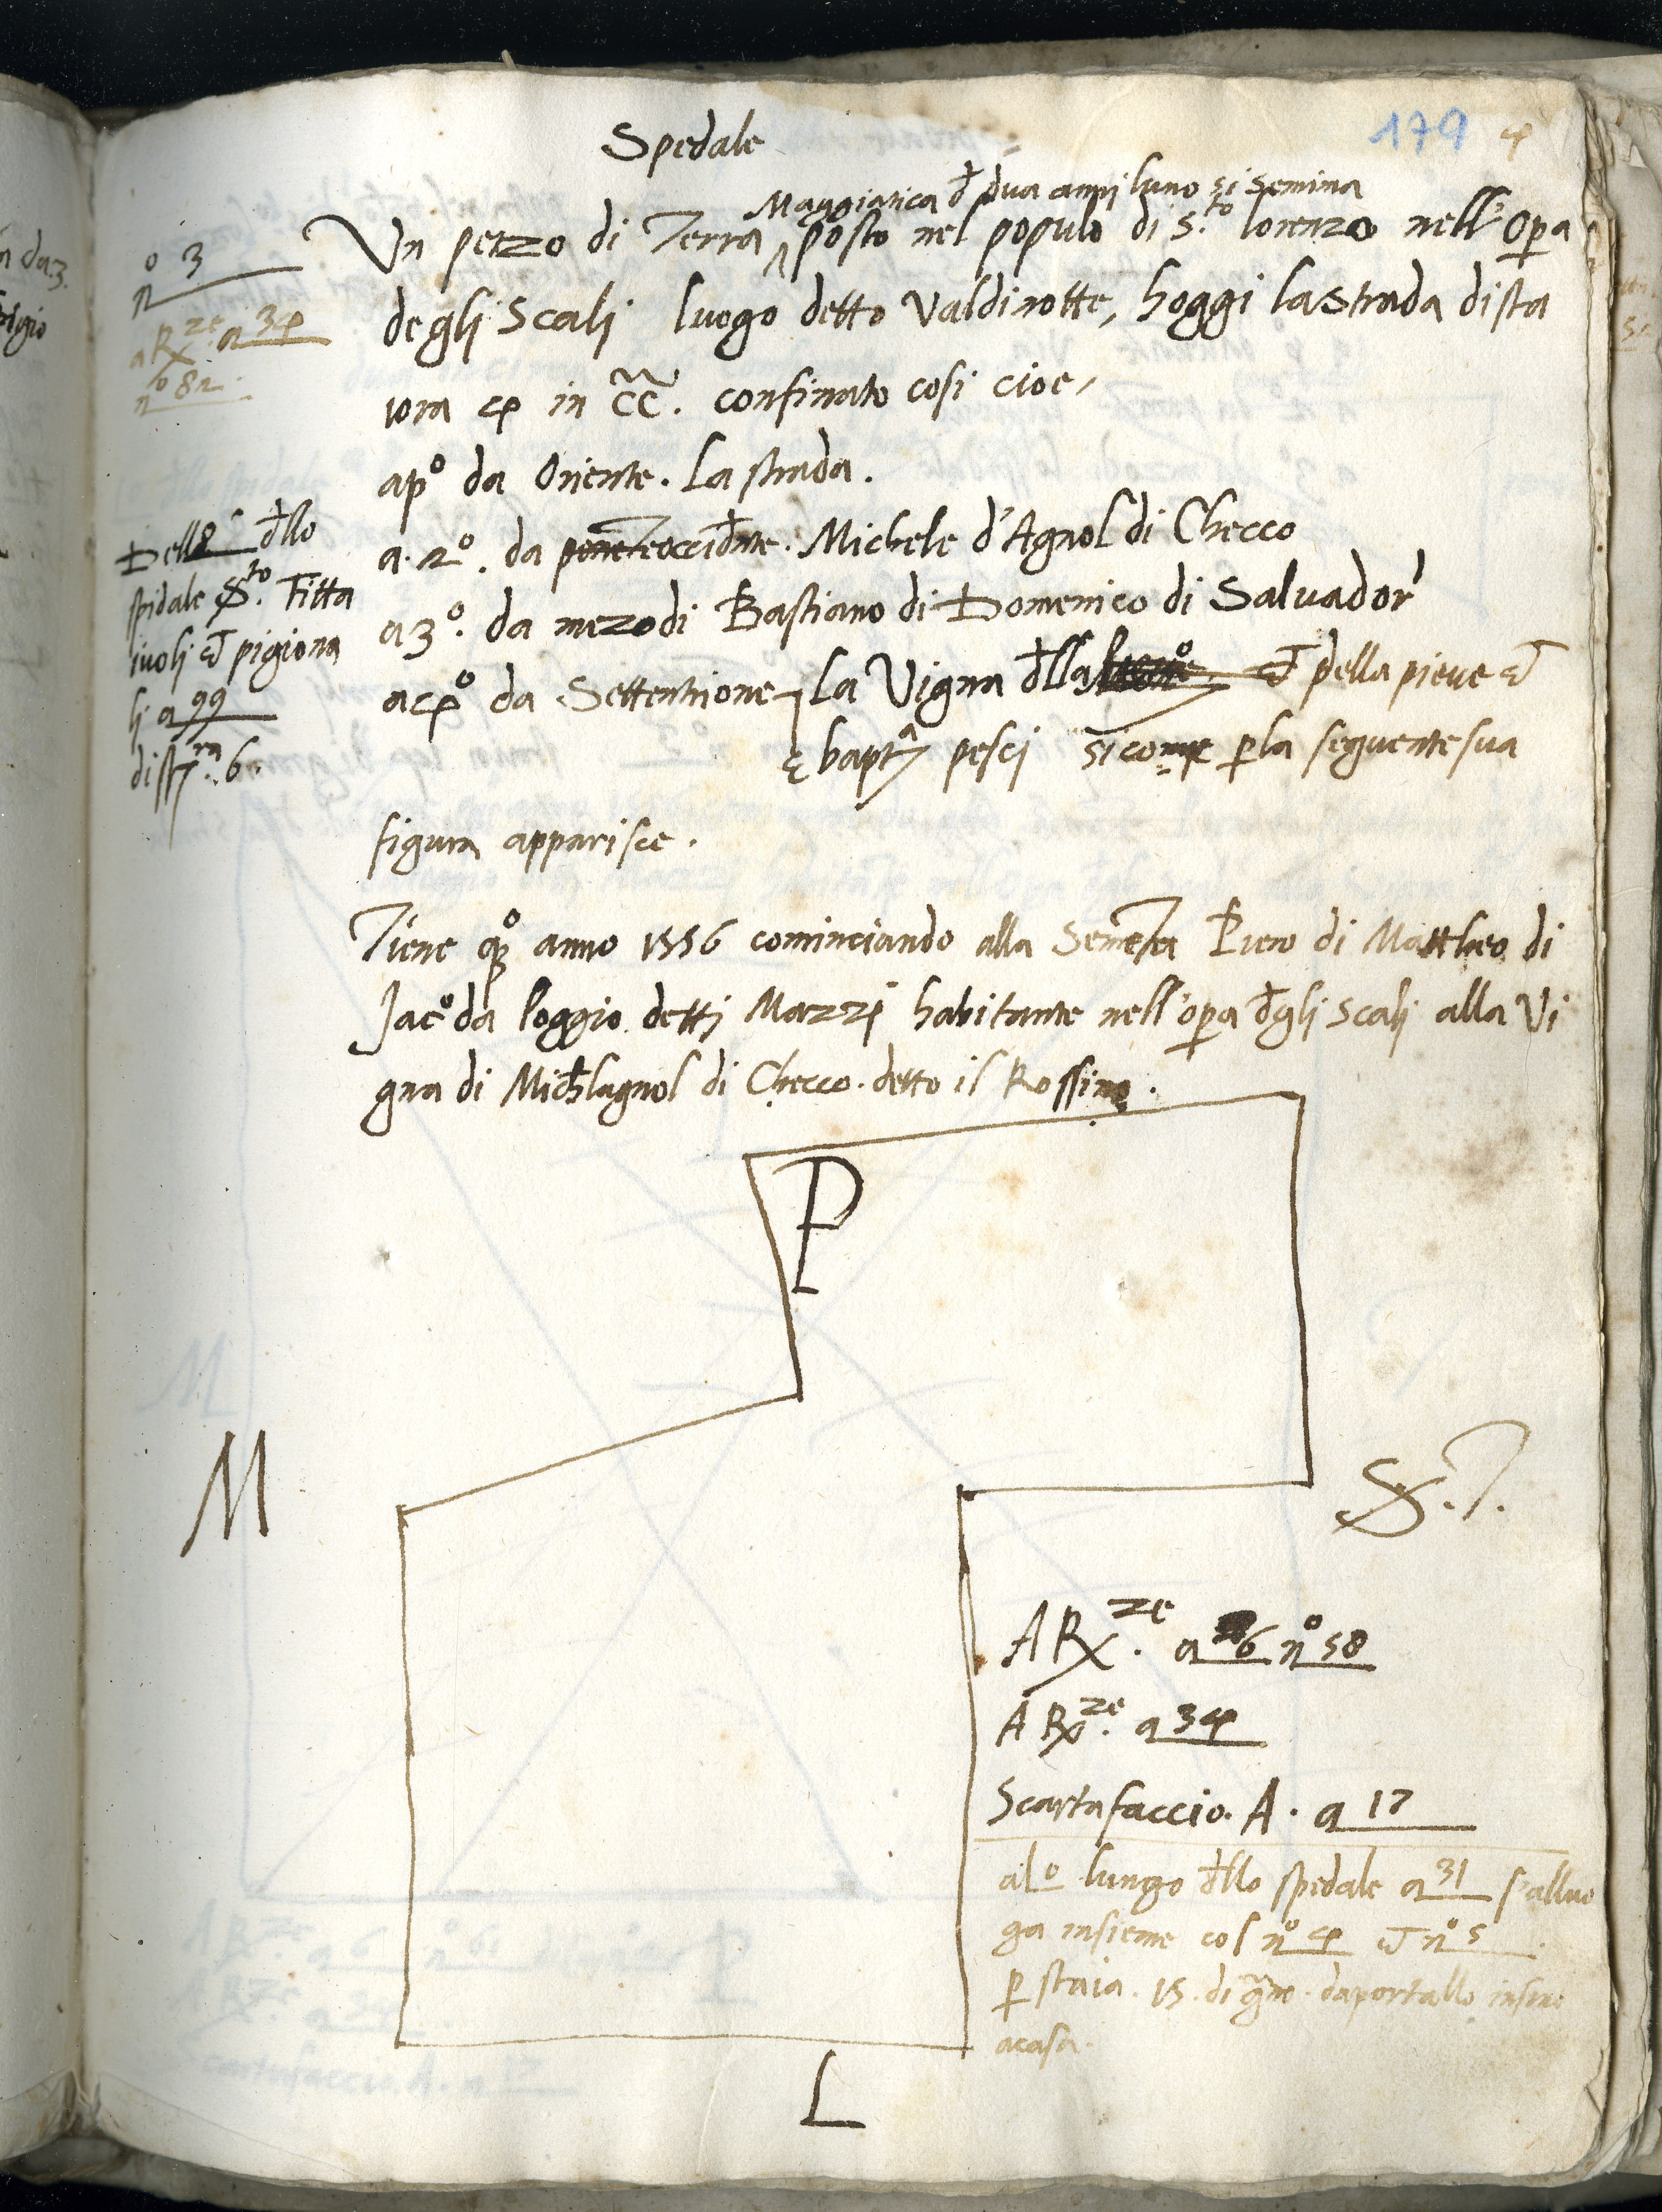 Spedale
179 4
Maggiatica đ dua anni luno si semina
n° 3
Un pezzo di Terra ^ posto nel populo di S.to lorenzo nell'opa
aRze. a 34
n° 82.
degli Scali luogo detto Valdinotte, hoggi lastrada dista
iora 4 in cc. confinato cosi cioe,
ap° da Oriente. La strada.
a. 2°. da ponente occidēte. Michele d'Agnol di Checco
a3°. da mezodi Bastiano di Domenico di Salvador
a4° da Settentrione La Vigna đlla pella pieve
bapta pesci sicome p la seguente sua
figura apparisce.
Dell đllo
spidale S.to Fitta
iuoli pigiona
li a 99
6.
Tiene qº anno 1556 cominciando alla Semēta Piero di Mattheo di
Jac° da Poggio detti Mazzi habitante nell'opa đgli Scali alla Vi
gna di Michlagnol di Checco. detto il Rossino.
P
M
S. T.
A Rze. a 6 n° 58
A Rze. a 34
Scartafaccio. A. a 17
al° lungo đllo spedale a 31 s'alluo
ga insieme col n° 4 n° 5
p staia. 15. di grno. daportallo insino
acasa.
L